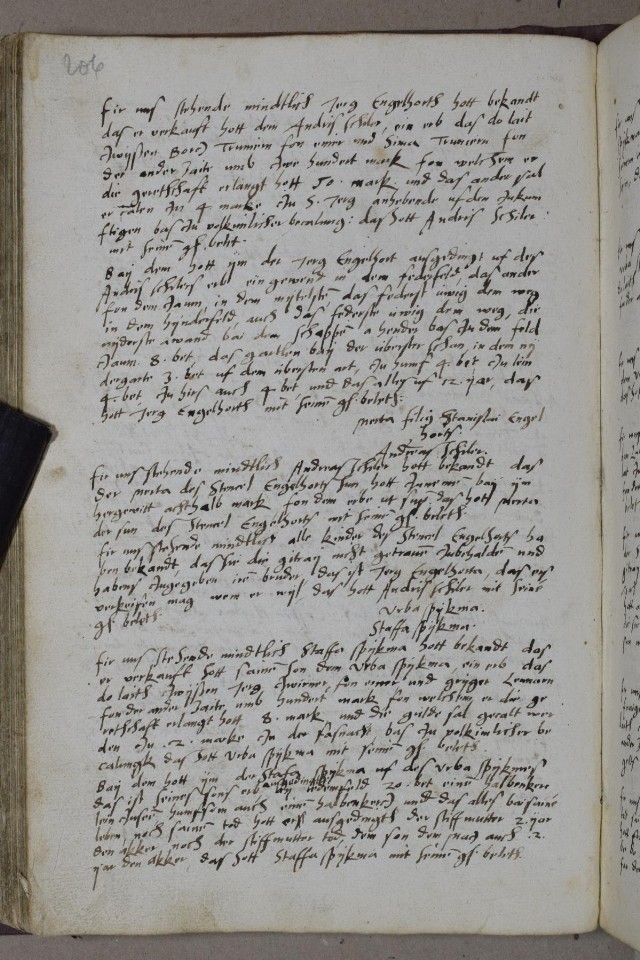 206
Fir uns stehende mindtlich Jerg Engelhorth hott bekandt
das er verkauft hott dem Andris Schiler, ein erb das do leit
zwyssen Borch Trumern fon einer und Simon Trumern fon
der ander zaite umb zwe hundert mark fon welchem er
die gerethschaft erlangt hott 50. mark und das ander sal
er czalen zu 4 marke zu S. Jerg anhebende uf den zukum
ftigen bas zu volkimlicher beczalung: das hott Andris Schiler
mit seinem gs. belet.
Baj dem hott im der Jerg Engelhort ausgedingt uf des
Andris Schilers erb ein gewend in dem federfeld das ander
fon den zaun, in dem mytelsten das federst uwig dem weg
in dem hynderfeld auch das federste uwig dem weg, die
bai dem Schoppen a hendes bas zu dem feld
zaun 8. bet, das gartlen baj der ubrister schon, in dem
dergarte 3. bet uf dem ubristen ort, zu hunf 4. bet zu lein
4. bet zu hirs auch 4 bet und das alles uf 12. jar, das
hott Jerg Engelhorth mit seinem gs. beleth.
merta filig Stanislai Engel
horts.
Andreas Schiler.
Fir uns stehende mindtlich Andreas Schiler hott bekandt das
der merta des Stencel Engelhorts sun hott zunemen baj im
hergewitt achthalb mark fon dem erbe uf das hott merta
der sun des Stencel Engelhorts mit seinem gs. beleth
Fir uns stehende mindtlich alle kinder des Stencel Engelhorts ha
ben bekandt, das sie die nicht getrauen zubehalden und
habens zugegeben irem bruder, das ist Jerg Engelhorta, das ers
verkeifen mag wem er wyl das hott Andris Schiler mit seine
gs. beleth.
Urba spijkma.
Staffa spijkma.
Fir uns stehende mindtlich Staffa spijkma hott bekandt das
er verkauft hott saine son dem Urba spijkma, ein erb das
do laith zwyssen Jerg zwirner, fon einer und gryger Lemarn
fon der ander zaite, umb hundert mark fon welchem er die ge
rethschaft erlangt hott 8. mark und die gilde sal geczalt wer
den zu .2. marke zu der fasnacht bas zu volkimlicher be
czalengk das hott Urba spijkma mit seinem gs. beleth
Baj dem hott im der Staffa spijkma uf des Urba spijkmes
das ist seines sons erb ausgedingt 20. bet eine halbenkere
lein zusein humfson auch eine halbenkere und das alles bai saine
leben, noch sainem tod hott ers ausgedingth der stiffmutter 2. jor
den akker noch der stiffmutter tod, dem son dem auch .2.
jar den akker, das hott Staffa spijkma mit seinem gs. beleth